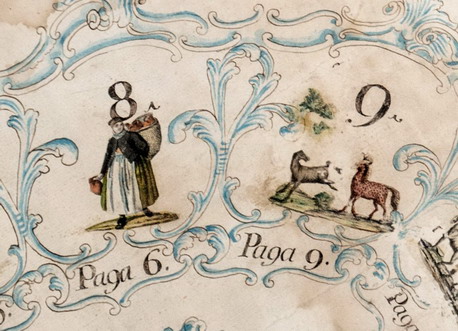 8
9
Paga 6.
Paga 9.
Paga